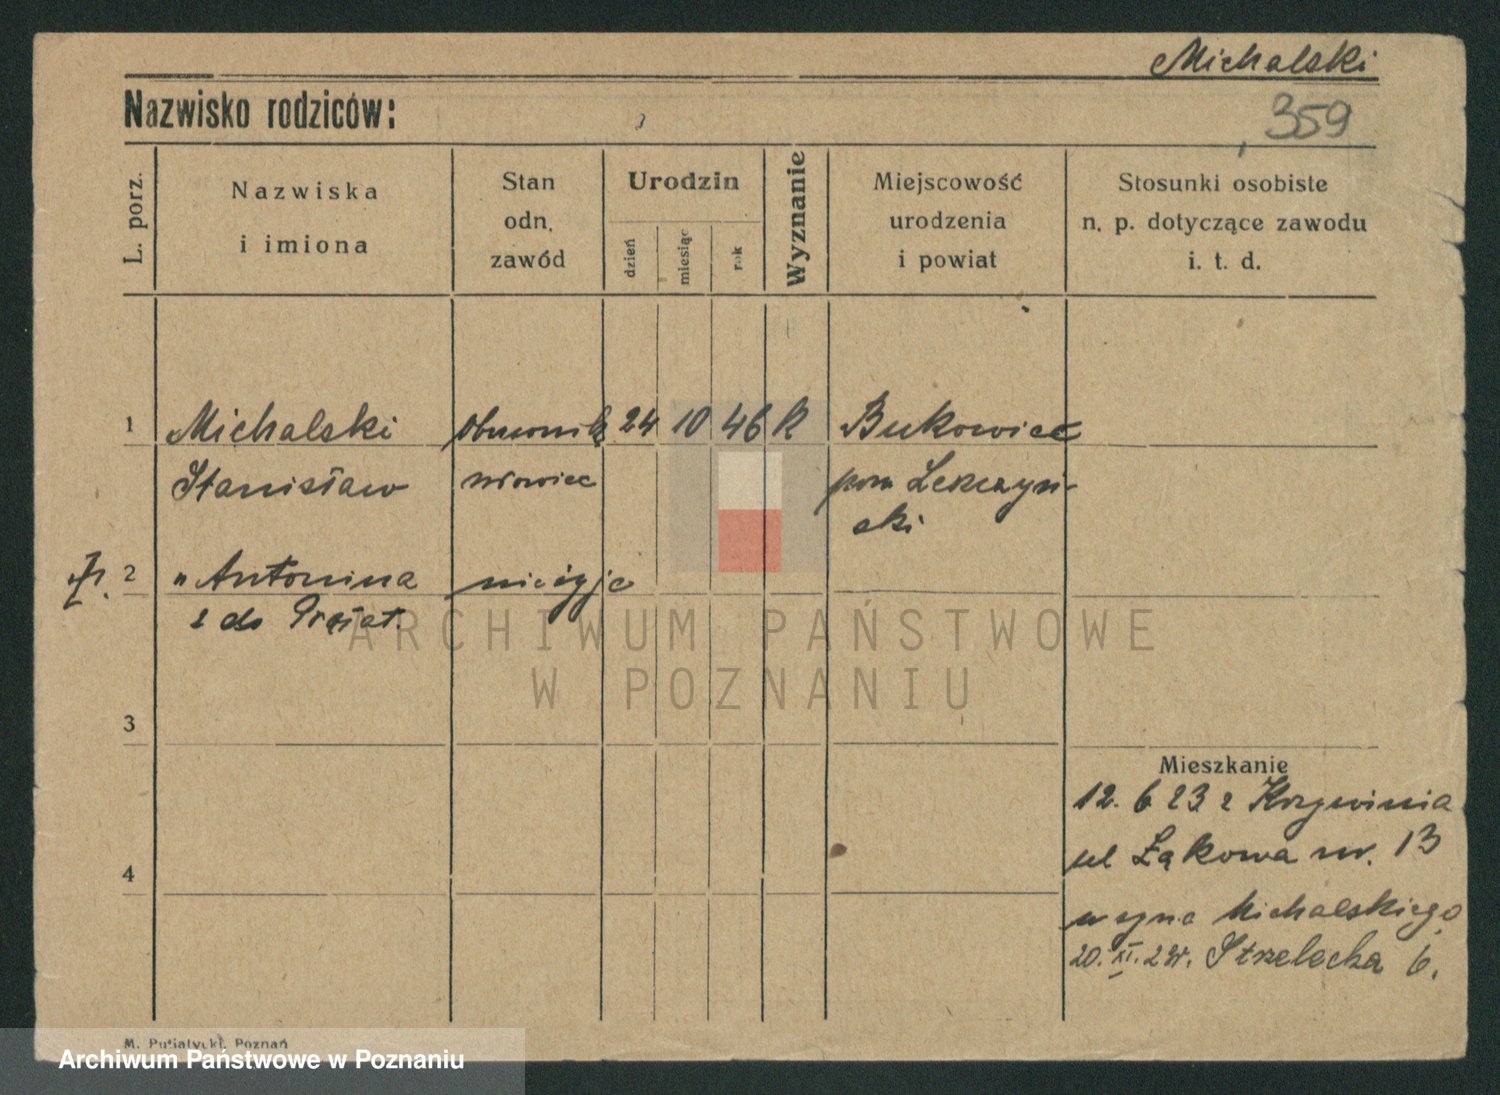 Michalski
Nazwisko rodziców:
359
L. porz.
Nazwiska
i imiona
Stan
odn.
zawód
Urodzin
dzień
miesiąc
rok
Wyznanie
Miejscowość
urodzenia
i powiat
Stosunki osobiste
n. p. dotyczące zawodu
i. t. d.
1 Michalski obuwnik 24 10 46 k Bukowiec
Stanisław wdowiec pow
ski
2 " Antonina nieżyje
z do
3
4
Mieszkanie
12. 6 23 z Krzywinia
ul Łąkowa nr. 13
u syna Michalskiego
20. XI. 28r. Strzelecka 6.
M. Putiatycki, Poznań
ARCHIWUM PAŃSTWOWE
W POZNANIU
Archiwum Państwowe w Poznaniu